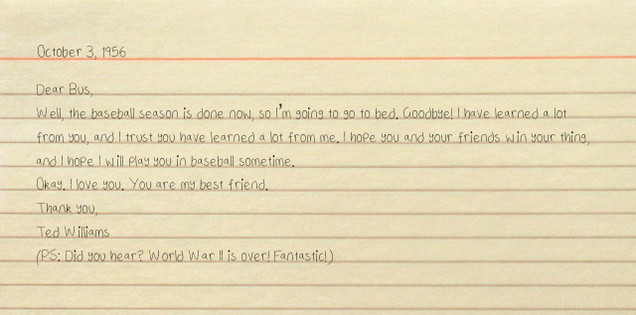 October 3, 1956
Dear Bus,
Well, the baseball season is done now, so I'm going to go to bed. Goodbye! I have learned a lot
from you, and I trust you have learned a lot from me. I hope you and your friends win your thing,
and I hope I will play you in baseball sometime.
Okay. I love you. You are my best friend.
Thank you,
Ted Williams
(PS: Did you hear? World War II is over! Fantastic!)